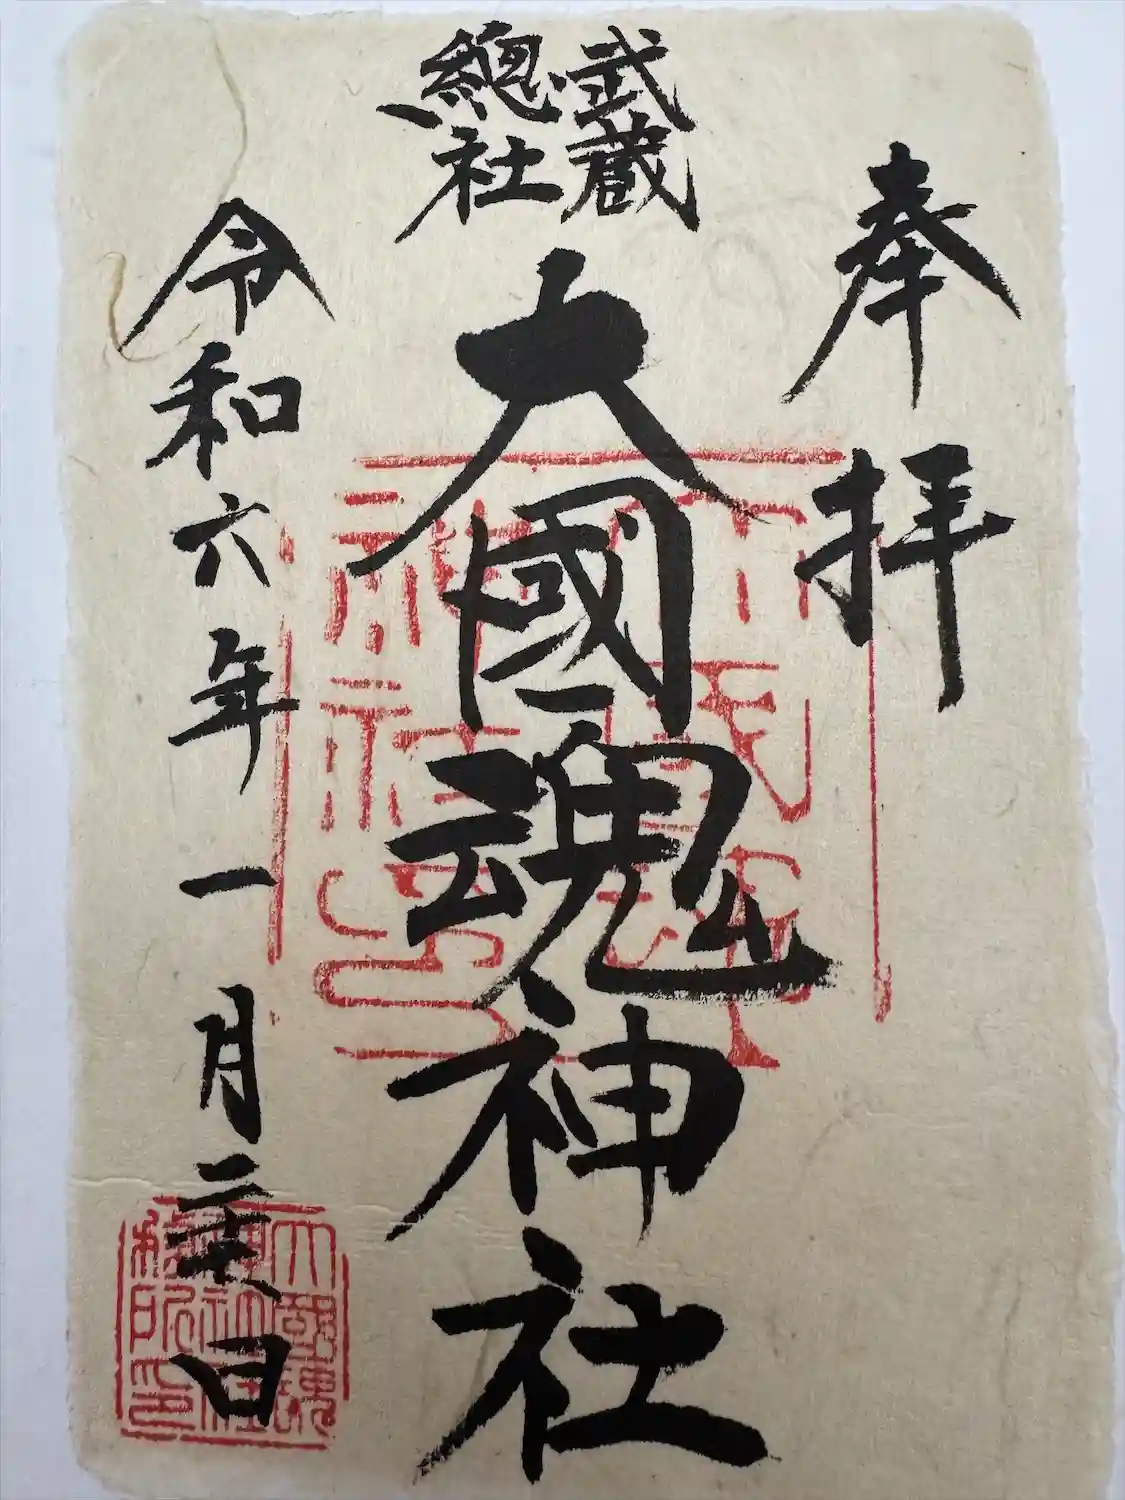 奉拝
武蔵
總社
大國魂神社
令和六年一月二十日
大國魂
神社社
務所印